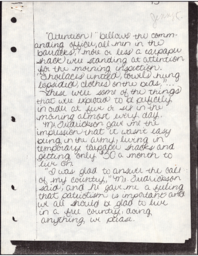 "Attention!" bellows the comm-
anding officer, all men in the
barracks, more or less a tarpaper
shack were standing at attention
for the morning inspection.
Shoelaces untied, towels hung
lopsided, clothes on the rack,
these were some of the things
that we expected to be
in order or in the
morning almost every day.
Mr. gave me the
impression that it wasnt easy
being in the army, living in
temporary tarpaper shacks and
getting only $50 a month to
live on.
"I was glad to answer the call
of my country," Mr.
said, and he gave me a feeling
that patriotism is important and
we all should be glad to live
in a free country doing
anything we please.